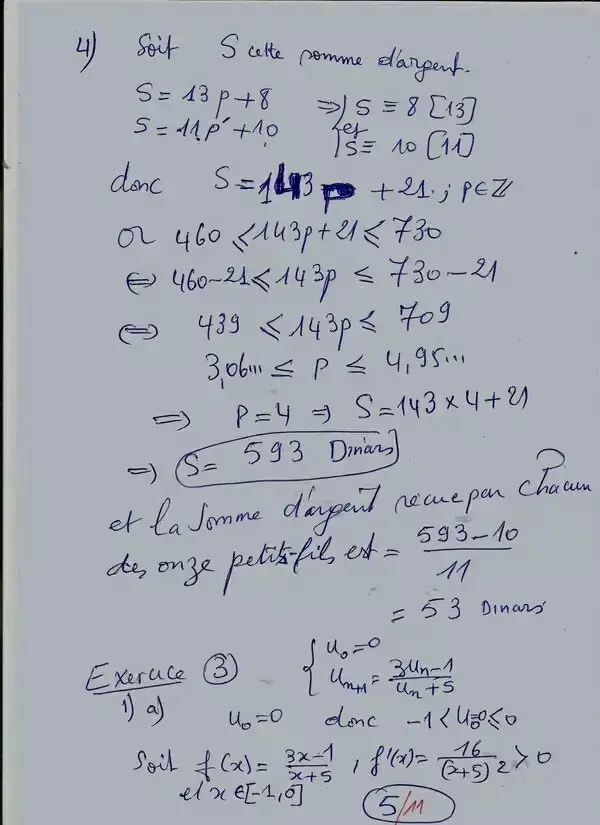 4) Soit S cette somme d'argent.
S = 13p + 8 ⇒ { S ≡ 8 [13]
S = 11p' + 10 et { S ≡ 10 [11]
donc S = 143 p + 21 ; p ∈ ℤ
or 460 ≤ 143p + 21 ≤ 730
⇔ 460 - 21 ≤ 143p ≤ 730 - 21
⇔ 439 ≤ 143p ≤ 709
3,06... ≤ P ≤ 4,95...
⇒ P = 4 ⇒ S = 143 × 4 + 21
⇒ S = 593 Dinars
et la somme d'argent recue par chacun
des onze petits-fils est = (593 - 10)/11
= 53 Dinars
Exercice 3 { u₀ = 0
{ uₙ₊₁ = (3uₙ - 1)/(uₙ + 5)
1) a) u₀ = 0 donc -1 < u₀ = 0 ≤ 0
Soit f(x) = (3x - 1)/(x + 5) , f'(x) = 16/(x + 5)² > 0
et x ∈ [-1, 0]
5/11